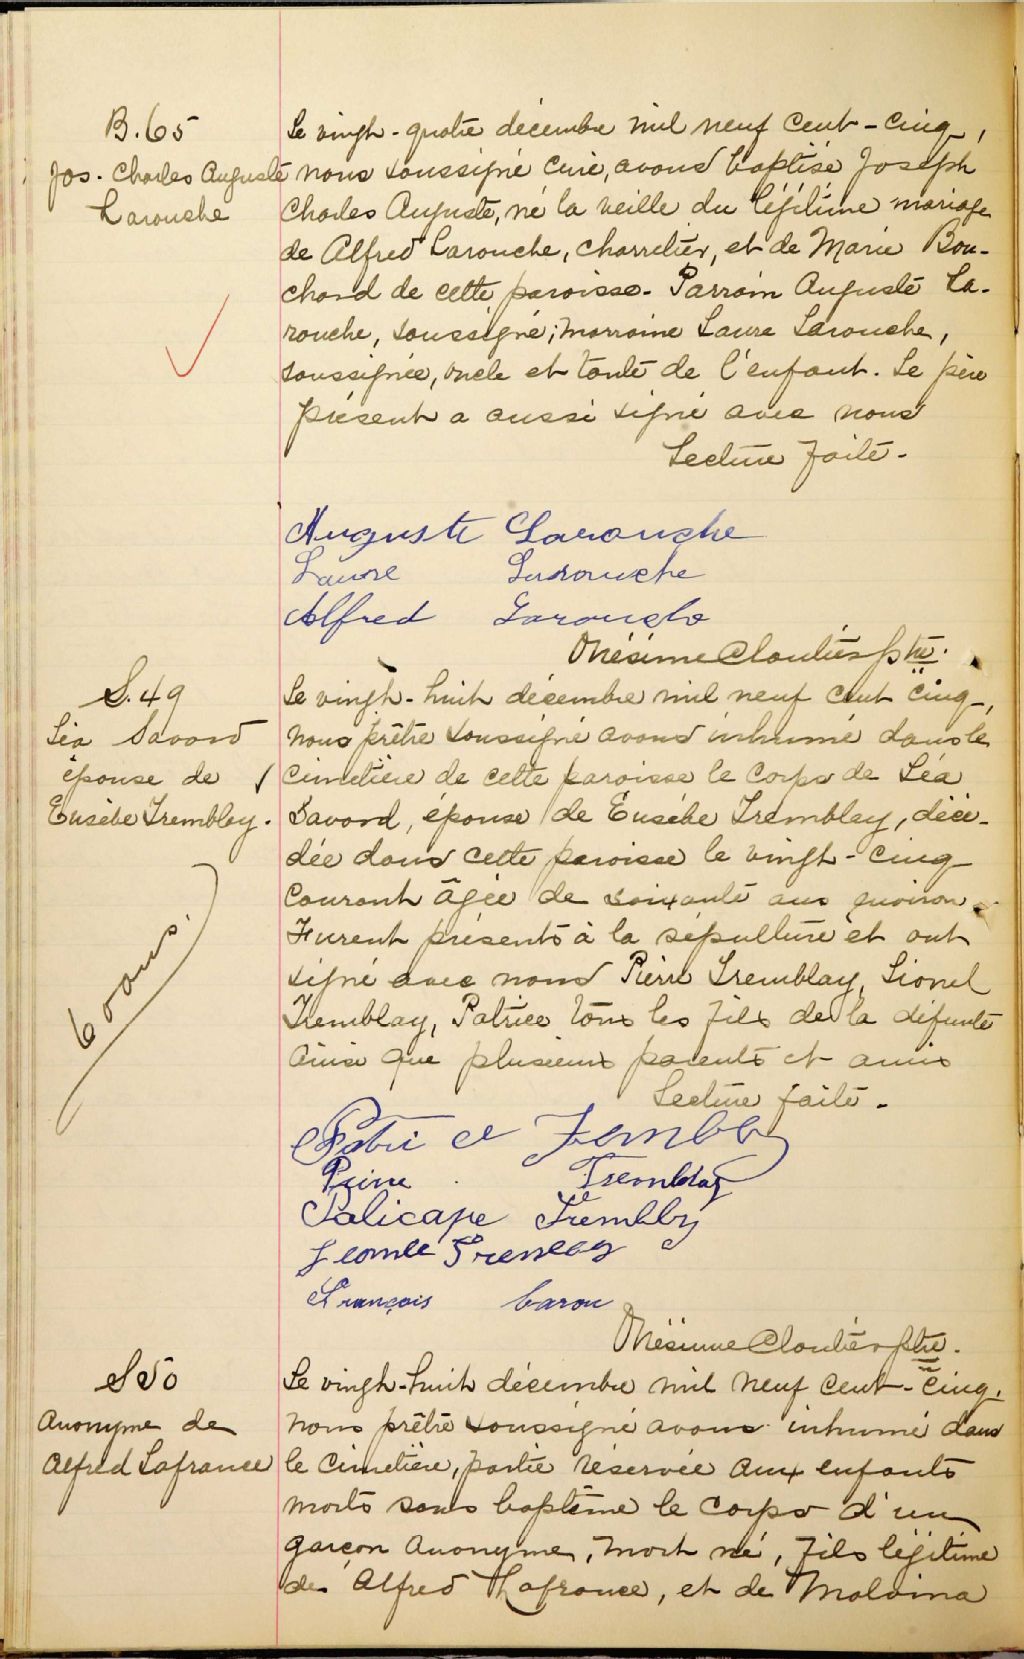 B.65
Jos. Charles Auguste
Larouche
Le vingt-quatre décembre mil neuf cent-cinq,
nous soussigné curé, avons baptisé Joseph
Charles Auguste, né la veille du légitime mariage
de Alfred Larouche, charretier, et de Marie Bou-
chard de cette paroisse. Parrain Auguste La-
rouche, soussigné; marraine Laure Larouche,
soussignée, oncle et tante de l'enfant. Le père
présent a aussi signé avec nous
Lecture faite.
Auguste Larouche
Laure Larouche
Alfred Larouche
Onésime Cloutier ptre.
S.49
Léa Savard
épouse de
Eusèbe Tremblay.
60 ans.
Le vingt-huit décembre mil neuf cent cinq,
nous prêtre soussigné avons inhumé dans le
cimetière de cette paroisse le corps de Léa
Savard, épouse de Eusèbe Tremblay, décé-
dée dans cette paroisse le vingt-cinq
courant âgée de soixante ans environ
Furent présents à la sépulture et ont
signé avec nous Pierre Tremblay, Lionel
Tremblay, Patrice tous les fils de la défunte
ainsi que plusieurs parents et amis
Lecture faite.
Patrice Trembly
Pierre Tremblay
Policape Trembly
François Caron
Onésime Cloutier ptre.
S 50
Anonyme de
Alfred Lafrance
Le vingt-huit décembre mil neuf cent-cinq,
nous prêtre soussigné avons inhumé dans
le cimetière, partie réservée aux enfants
morts sans baptême le corps d'un
garçon anonyme, mort né, fils légitime
de Alfred Lafrance, et de Malvina